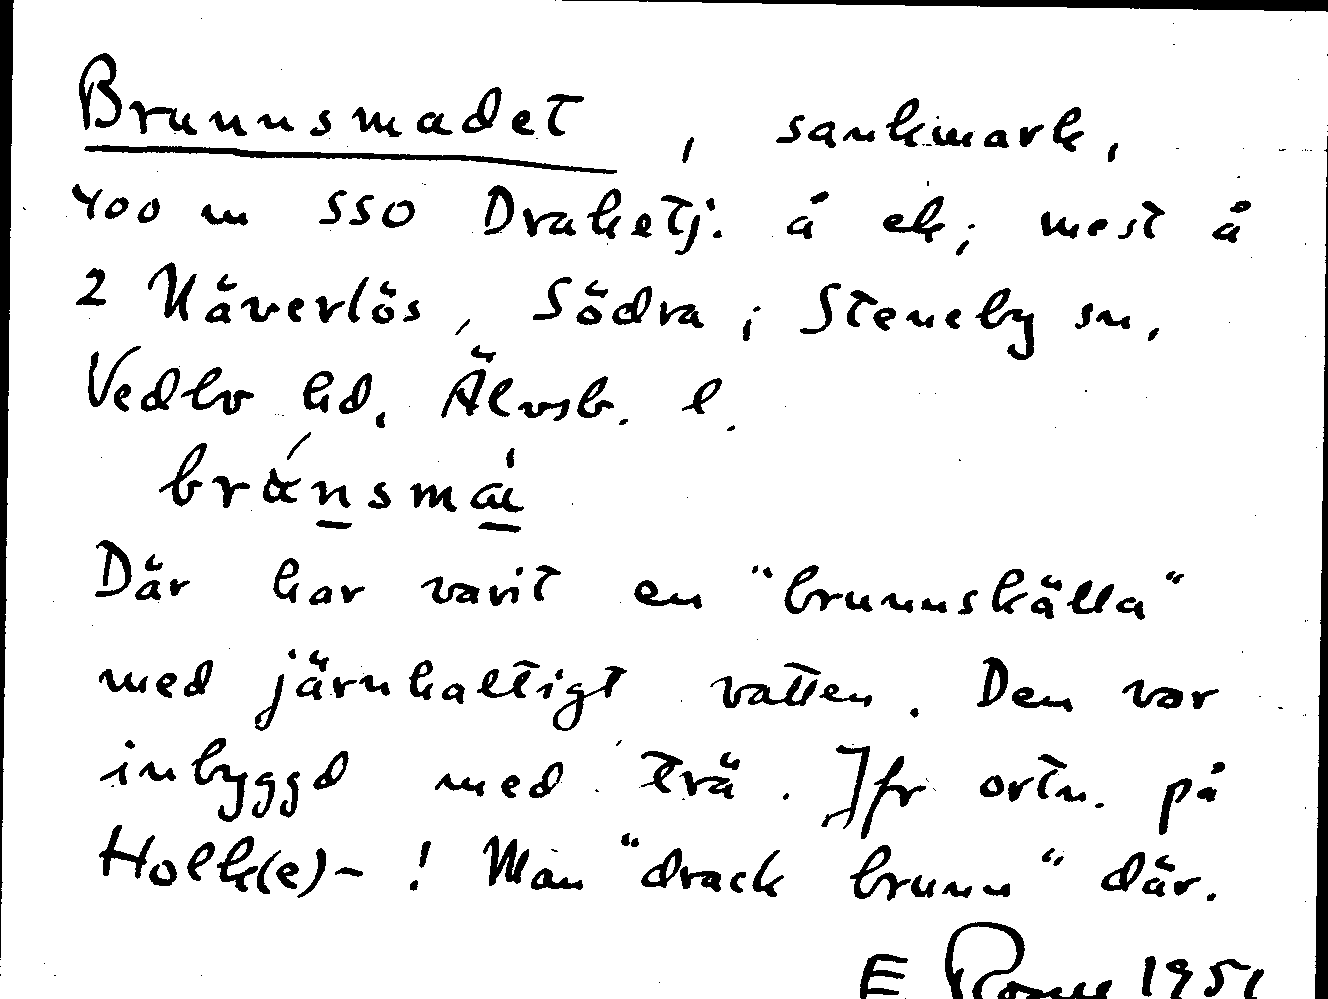 Brunnsmadet, sankmark,
400 m SSO Draketj. å ek; mest å
2 Näverlös, Södra i Steneby sn,
Vedbo hd, Älvsb. l.
Där har varit en "brunnskälla"
med järnhaltigt vatten. Den var
inbyggd med trä. Jfr ortn. på
Holk(e)- ! Man "drack brunn" där.
E 1951